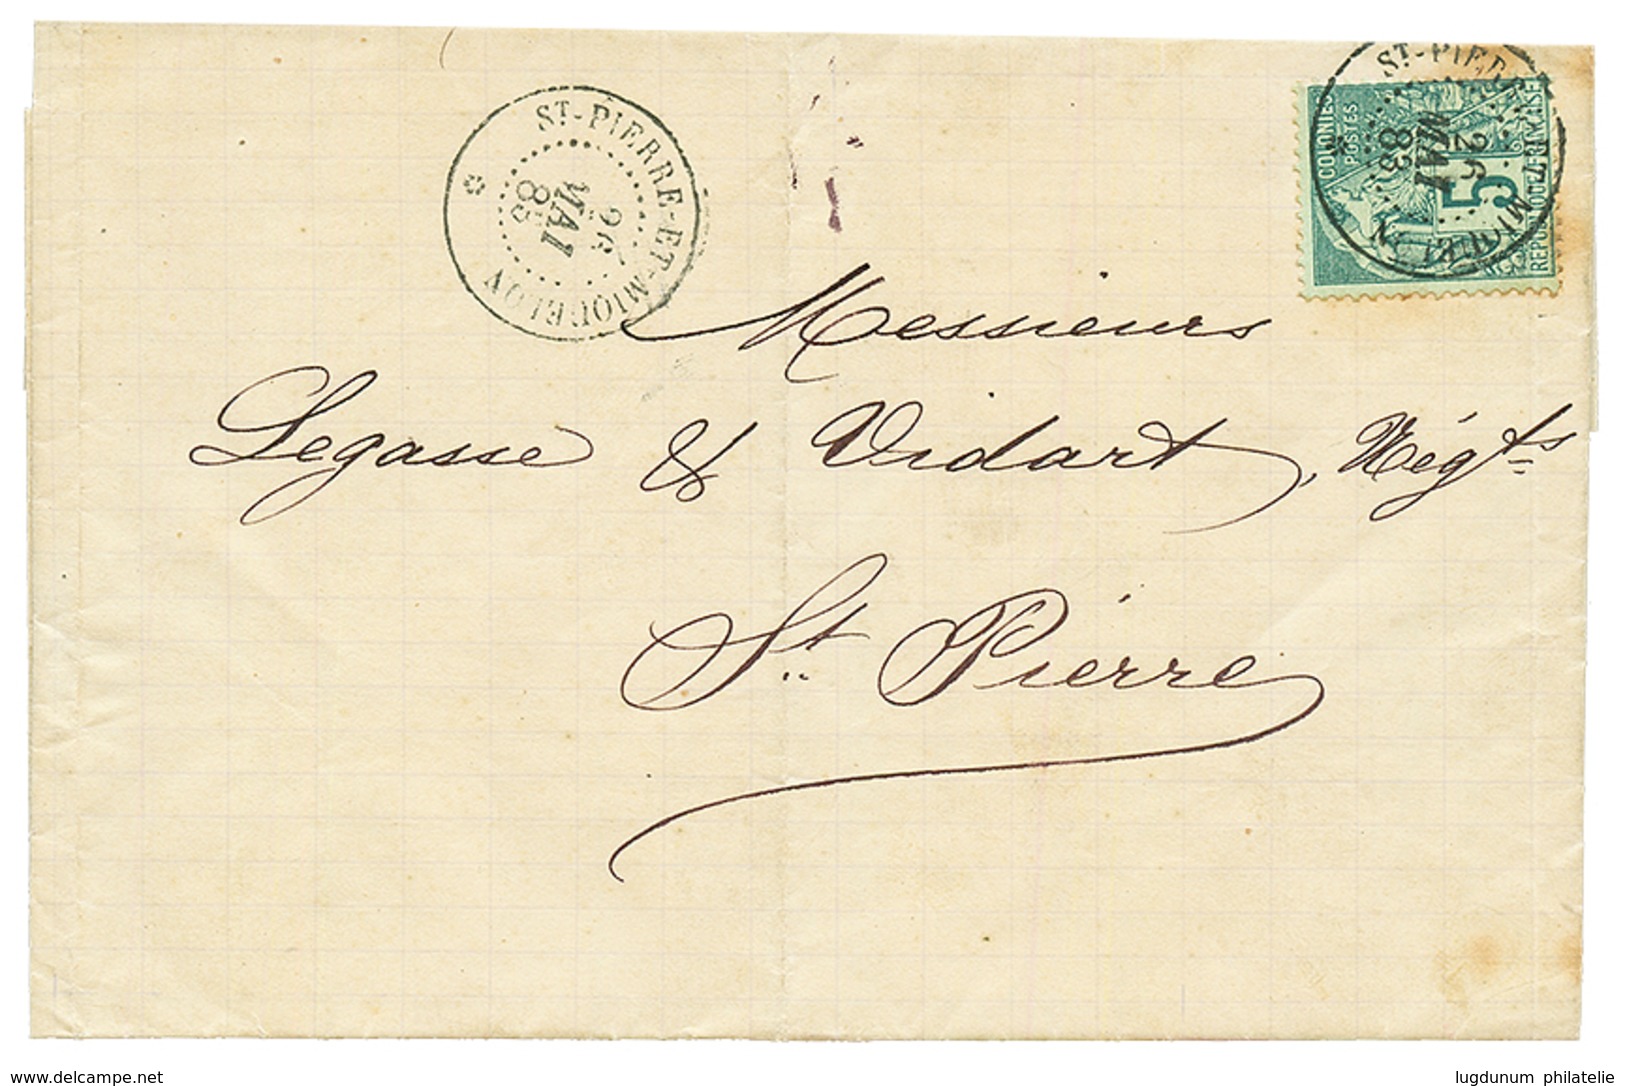 ST-PIERRE-ET-MIQUELON
26
MAI
85
ST-PIERRE-ET-MIQUELON
26
MAI
85
COLONIES
POSTES
5
Messieurs
Legasse & Vidart, Négts
St. Pierre
delcampe.net
lugdunum philatelie